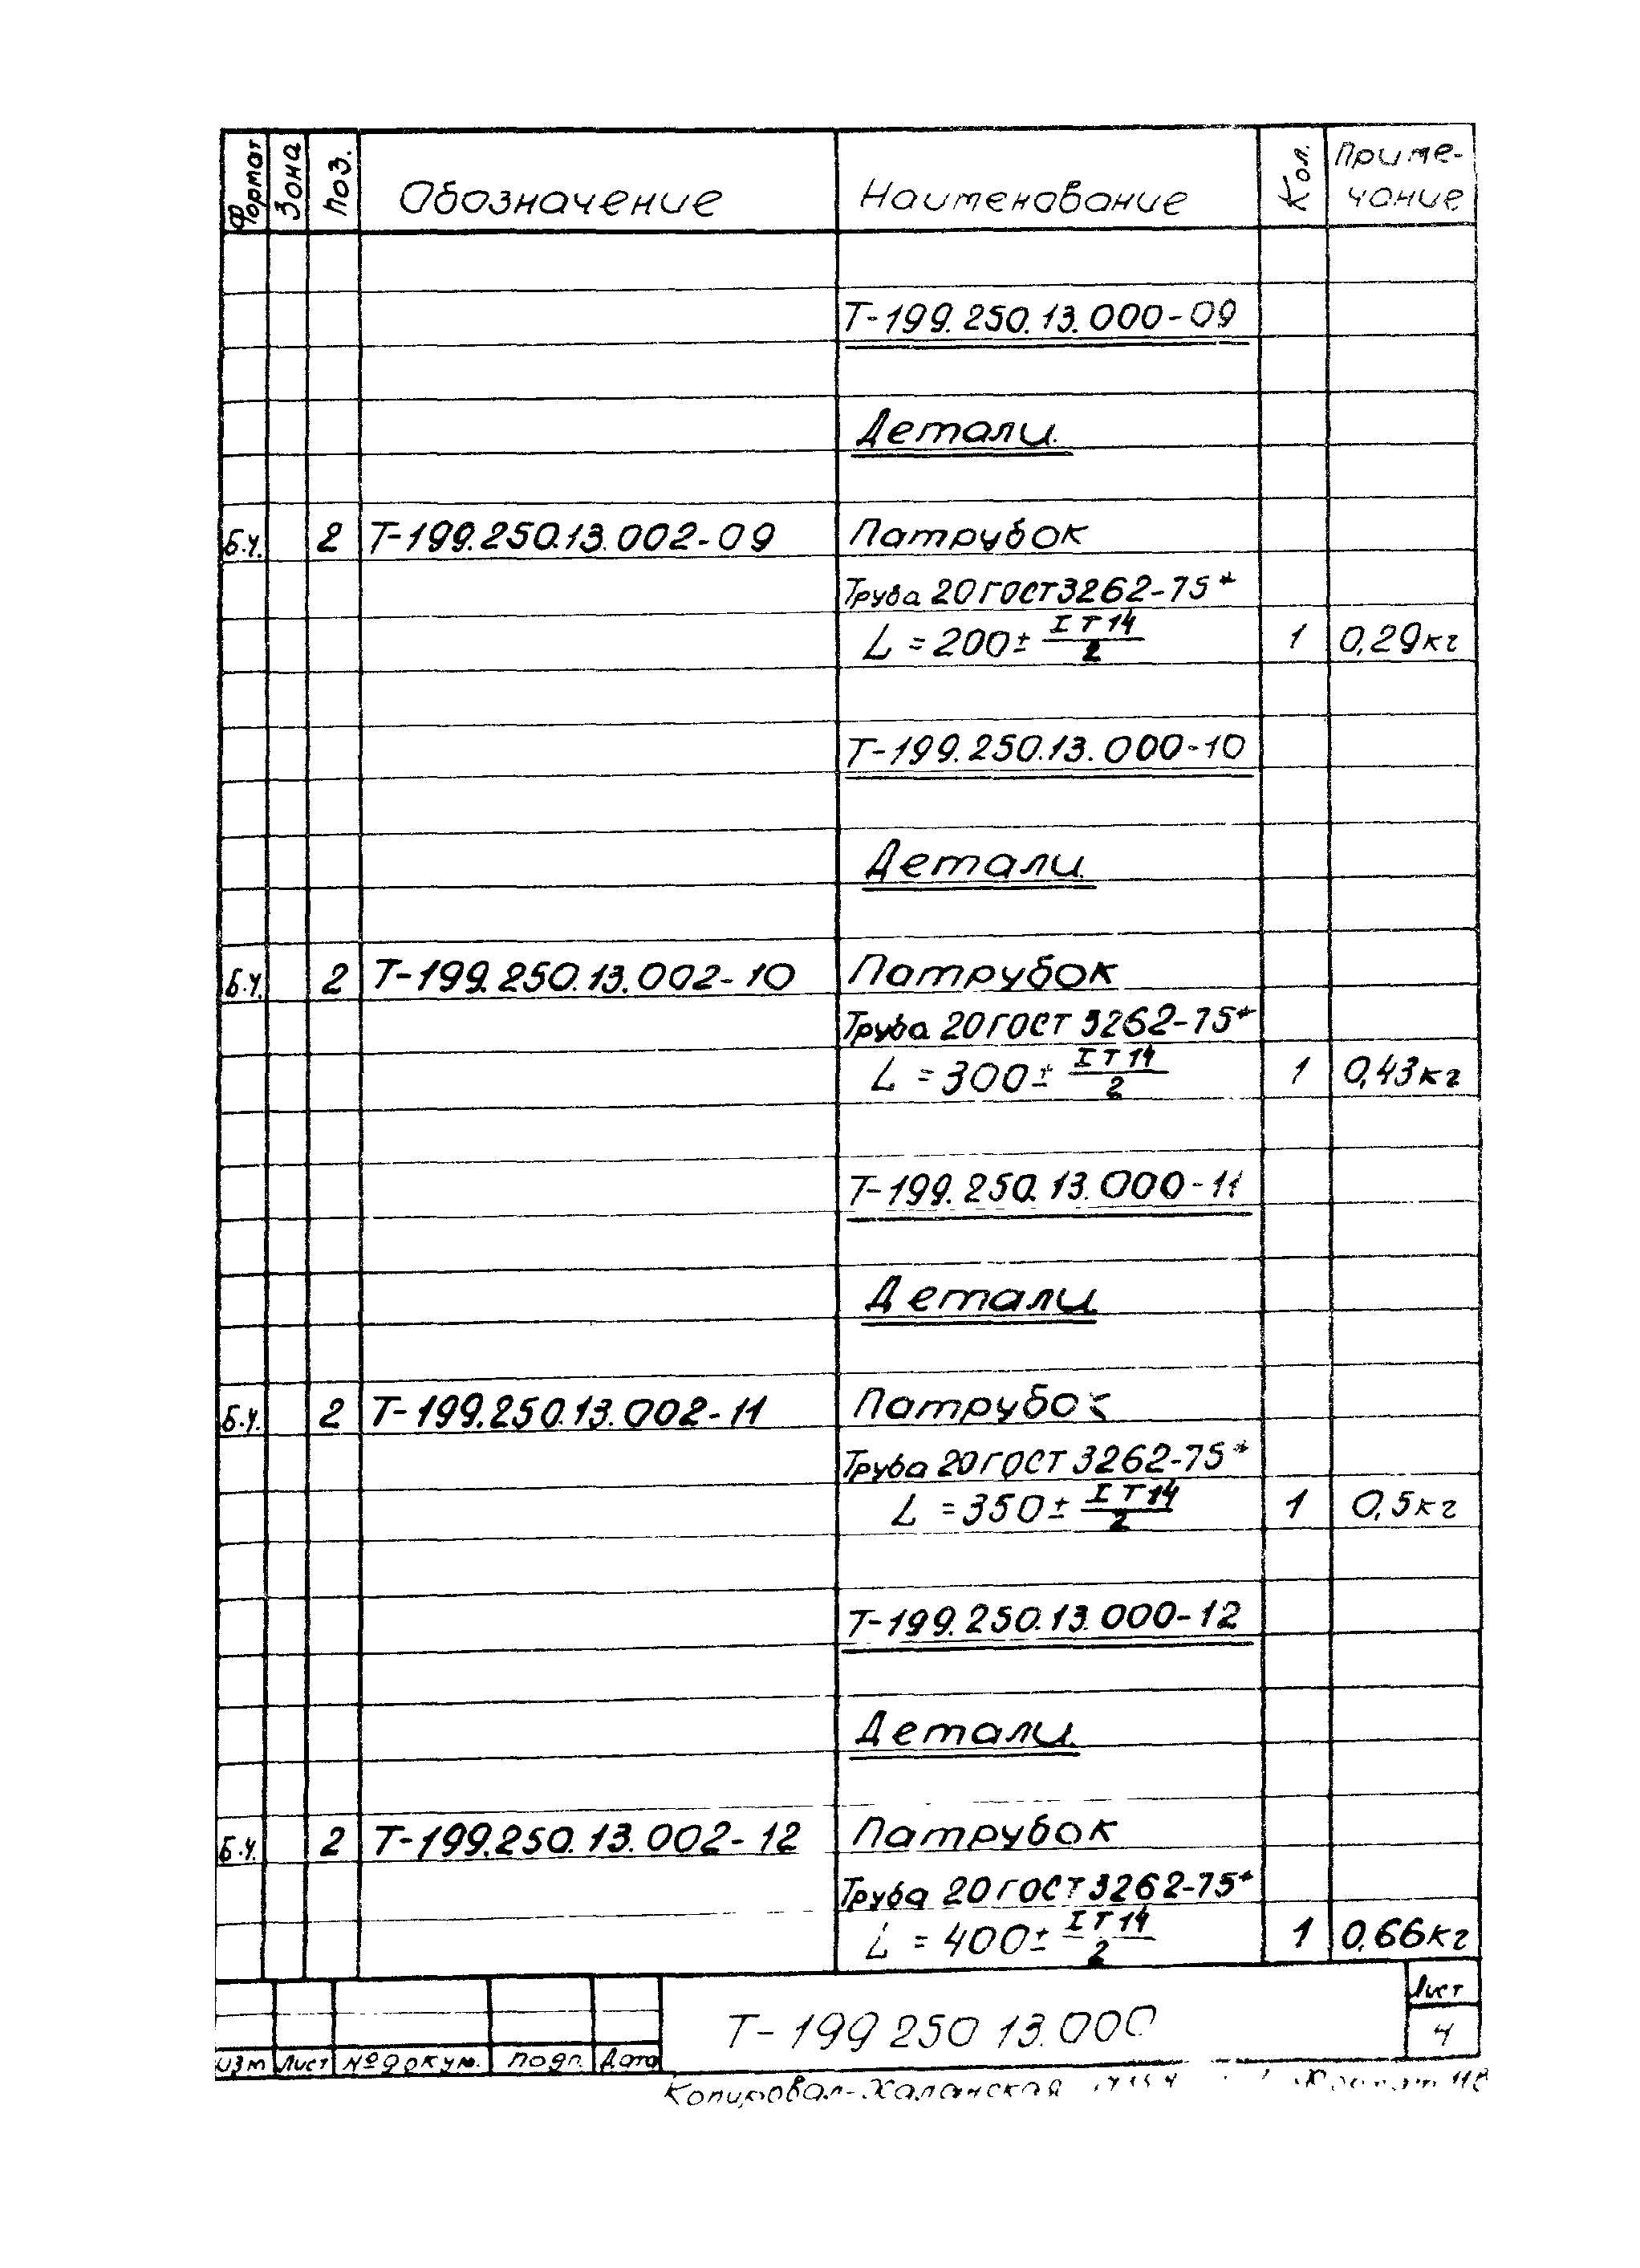 Формат Зона Поз. Обозначение Наименование Кол. Приме-
чание
Т-199.250.13.000-09
Детали
Б.Ч. 2 Т-199.250.13.002-09 Патрубок
Труба 20 ГОСТ 3262-75*
L = 200 ± IT14/2 1 0,29кг
Т-199.250.13.000-10
Детали
Б.Ч. 2 Т-199.250.13.002-10 Патрубок
Труба 20 ГОСТ 3262-75*
L = 300 ± IT14/2 1 0,43кг
Т-199.250.13.000-11
Детали
Б.Ч. 2 Т-199.250.13.002-11 Патрубок
Труба 20 ГОСТ 3262-75*
L = 350 ± IT14/2 1 0,5кг
Т-199.250.13.000-12
Детали
Б.Ч. 2 Т-199.250.13.002-12 Патрубок
Труба 20 ГОСТ 3262-75*
L = 400 ± IT14/2 1 0,66кг
Лист
Т-199 250 13.000
4
Изм Лист № докум. Подп. Дата
Копировал-Халанская